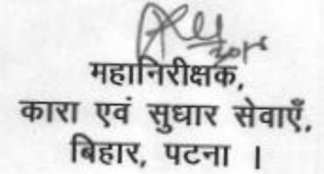 महानिरीक्षक,
कारा एवं सुधार सेवाएँ,
बिहार, पटना ।